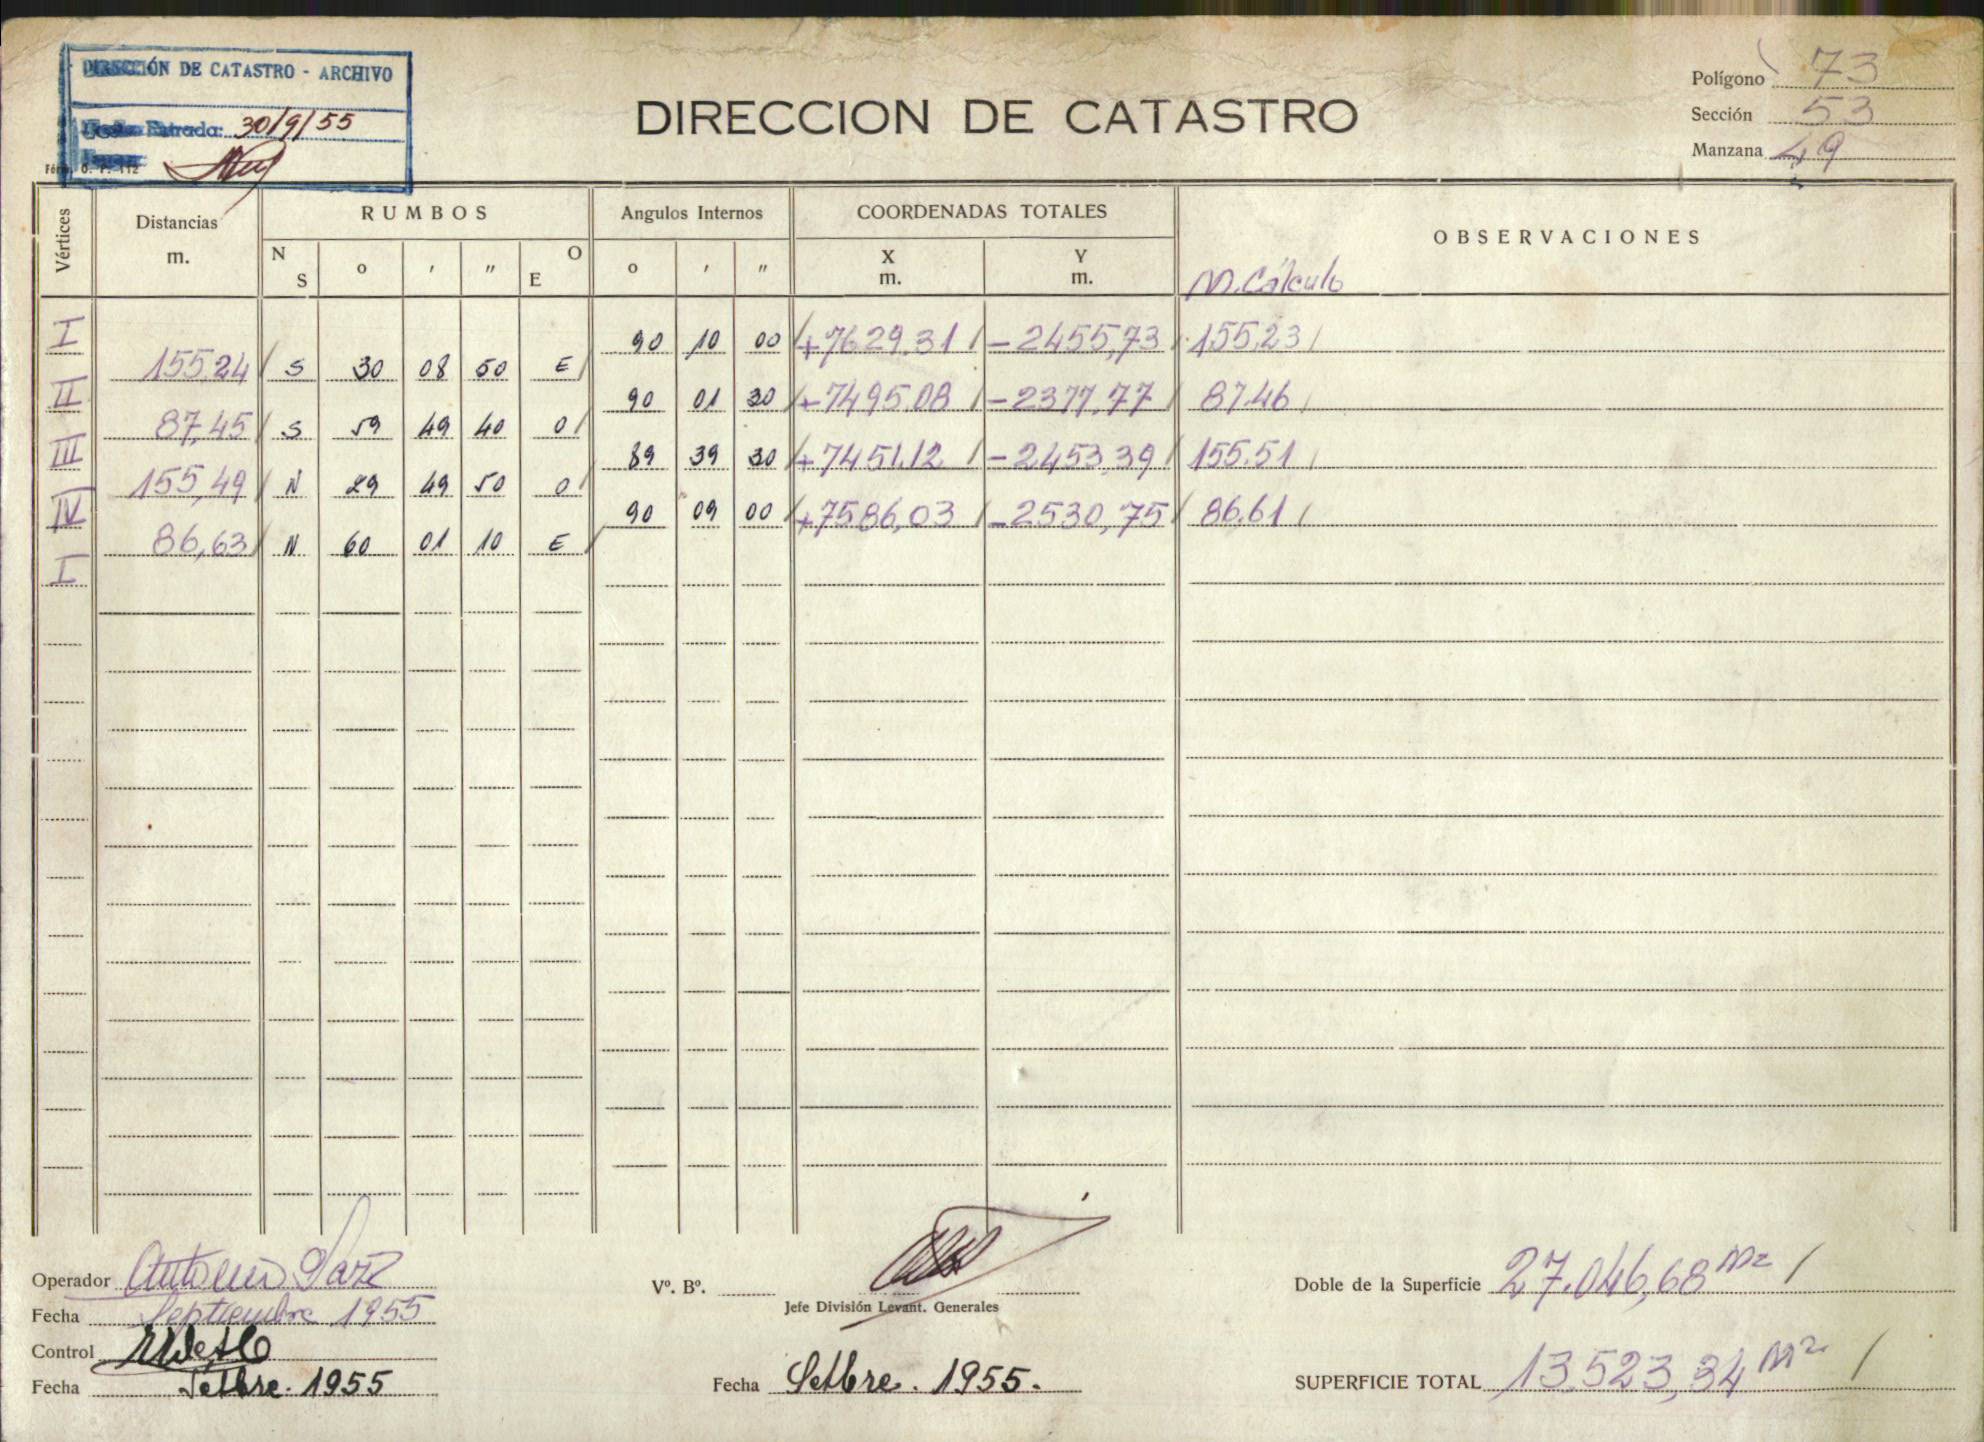 DIRECCIÓN DE CATASTRO - ARCHIVO
Entrada: 30/9/55
DIRECCION DE CATASTRO
Polígono 73
Sección 53
Manzana 49
Vértices
Distancias
m.
RUMBOS
N
S
o
,
,,
O
E
Angulos Internos
o
,
,,
COORDENADAS TOTALES
X
m.
Y
m.
OBSERVACIONES
M. Cálculo
I 90 10 00 +7629,31 -2455,73 155,23
155,24 S 30 08 50 E
II 90 01 30 +7495,08 -2377,77 87,46
87,45 S 59 49 40 O
III 89 39 30 +7451,12 -2453,39 155,51
155,49 N 29 49 50 O
IV 90 09 00 +7586,03 -2530,75 86,61
86,63 N 60 01 10 E
I
Operador
Fecha Septiembre 1955
Control
Fecha Setbre. 1955
Vº. Bº.
Jefe División Levant. Generales
Fecha Setbre. 1955.
Doble de la Superficie 27.046,68 m2
SUPERFICIE TOTAL 13.523,34 m2